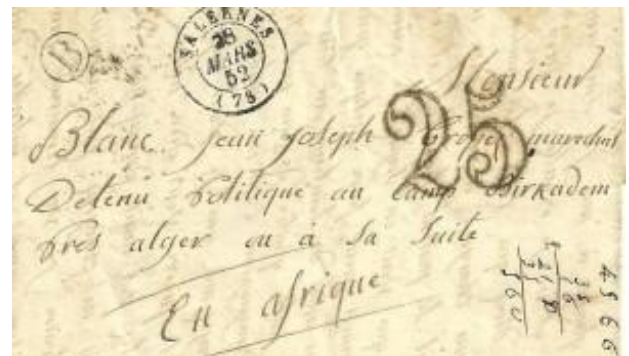 B
SALERNES
28
MARS
52
(78)
Monsieur
25
Blanc jean joseph marechal
Detenu politique au camp Birkadem
pres alger ou à Sa Suite
En afrique
4566